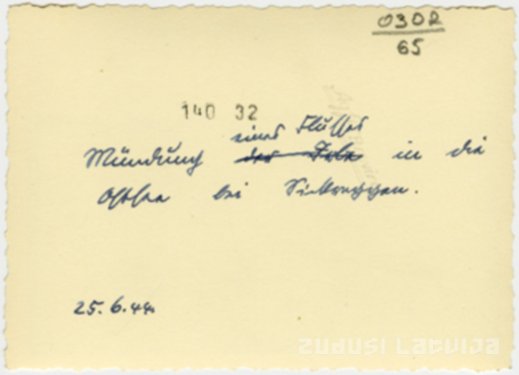 0302
65
140 32
eines Flusses
Mündung der in die
Ostsee bei
25.6.44.
zudusi Latvija